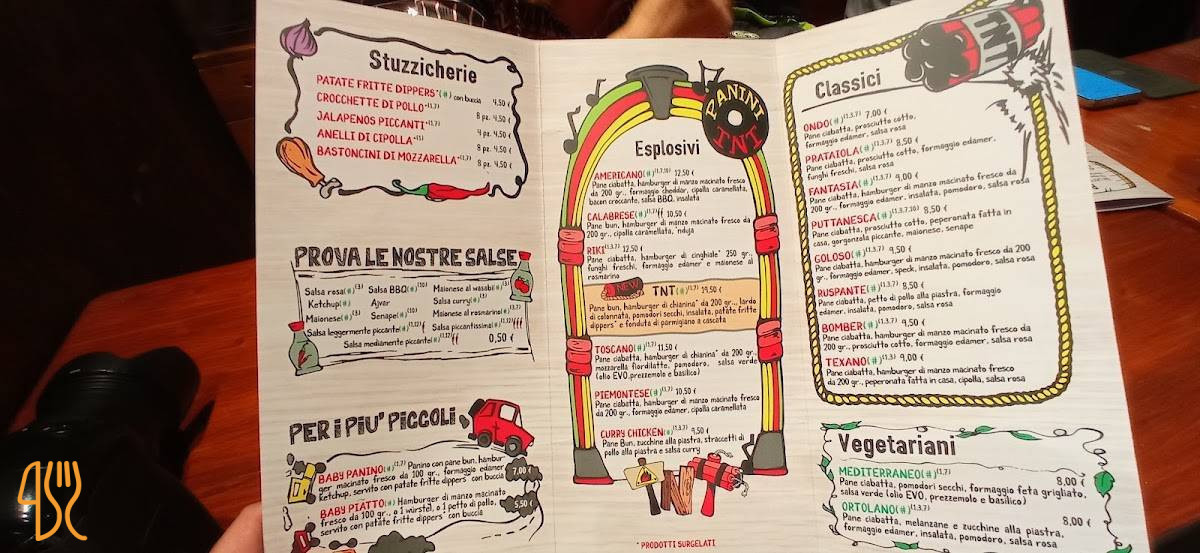 Stuzzicherie
PATATE FRITTE DIPPERS*(#) con buccia 4,50 €
CROCCHETTE DI POLLO*(1,7) 8 pz. 4,50 €
JALAPENOS PICCANTI*(1,7) 4 pz. 4,50 €
ANELLI DI CIPOLLA*(1) 8 pz. 4,50 €
BASTONCINI DI MOZZARELLA*(1,7) 8 pz. 4,50 €
PROVA LE NOSTRE SALSE
Salsa rosa(#)(3) Salsa BBQ(#)(10) Maionese al wasabi(#)(3)
Ketchup(#) Ajvar Salsa curry(#)(3)
Maionese(#)(3) Senape(#)(10) Maionese al rosmarino(#)(3)
Salsa leggermente piccante(#)(1,12) Salsa piccantissima(#)(1,12)
Salsa mediamente piccante(#)(1,12) 0,50 €
PER I PIU' PICCOLI
BABY PANINO(#)(1,7) Panino con pane bun, hambur
ger macinato fresco da 100 gr., formaggio edamer
ketchup, servito con patate fritte dippers* con buccia 7,00 €
BABY PIATTO(#) Hamburger di manzo macinato
fresco da 100 gr., o 1 würstel, o 1 petto di pollo,
servito con patate fritte dippers* con buccia 5,50 €
PANINI
TNT
Esplosivi
AMERICANO(#)(1,7,10) 12,50 €
Pane ciabatta, hamburger di manzo macinato fresco
da 200 gr., formaggio cheddar, cipolla caramellata,
bacon croccante, salsa BBQ, insalata
CALABRESE(#)(1,7) 10,50 €
Pane bun, hamburger di manzo macinato fresco da
200 gr., cipolla caramellata, 'nduja
RIKI(1,3,7) 12,50 €
Pane ciabatta, hamburger di cinghiale* 250 gr.,
funghi freschi, formaggio edamer e maionese al
rosmarino
NEW TNT(#)(1,7) 13,50 €
Pane bun, hamburger di chianina* da 200 gr., lardo
di colonnata, pomodori secchi, insalata, patate fritte
dippers* e fonduta di parmigiano a cascata
TOSCANO(#)(1,7) 11,50 €
Pane ciabatta, hamburger di chianina* da 200 gr.,
mozzarella fiordilatte, pomodoro, salsa verde
(olio EVO, prezzemolo e basilico)
PIEMONTESE(#)(1,7) 10,50 €
Pane ciabatta, hamburger di manzo macinato fresco
da 200 gr., formaggio edamer, cipolla caramellata
CURRY CHICKEN(#)(1,3,7) 9,50 €
Pane Bun, zucchine alla piastra, straccetti di
pollo alla piastra e salsa curry
TNT
* PRODOTTI SURGELATI
TNT
Classici
ONDO(#)(1,3,7) 7,00 €
Pane ciabatta, prosciutto cotto,
formaggio edamer, salsa rosa
PRATAIOLA(#)(1,3,7) 8,50 €
Pane ciabatta, prosciutto cotto, formaggio edamer,
funghi freschi, salsa rosa
FANTASIA(#)(1,3,7) 9,00 €
Pane ciabatta, hamburger di manzo macinato fresco da
200 gr., formaggio edamer, insalata, pomodoro, salsa rosa
PUTTANESCA(#)(1,3,7,10) 8,50 €
Pane ciabatta, prosciutto cotto, peperonata fatta in
casa, gorgonzola piccante, maionese, senape
GOLOSO(#)(1,3,7) 9,50 €
Pane ciabatta, hamburger di manzo macinato fresco da 200
gr., formaggio edamer, speck, insalata, pomodoro, salsa rosa
RUSPANTE(#)(1,3,7) 8,50 €
Pane ciabatta, petto di pollo alla piastra, formaggio
edamer, insalata, pomodoro, salsa rosa
BOMBER(#)(1,3,7) 9,50 €
Pane ciabatta, hamburger di manzo macinato fresco da
200 gr., prosciutto cotto, formaggio edamer, salsa rosa
TEXANO(#)(1,3) 9,00 €
Pane ciabatta, hamburger di manzo macinato fresco
da 200 gr., peperonata fatta in casa, cipolla, salsa rosa
Vegetariani
MEDITERRANEO(#)(1,7) 8,00 €
Pane ciabatta, pomodori secchi, formaggio feta grigliato,
salsa verde (olio EVO, prezzemolo e basilico)
ORTOLANO(#)(1,3,7) 8,00 €
Pane ciabatta, melanzane e zucchine alla piastra,
formaggio edamer, insalata, pomodoro, salsa rosa